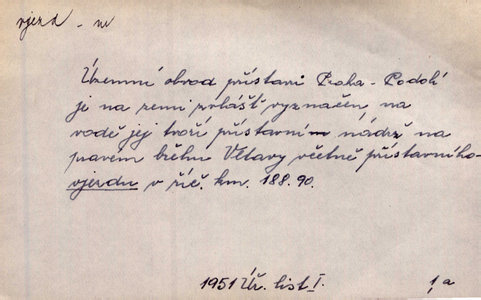 vjezd - m
Územní obvod přístavu Praha - Podolí
je na zemi zvlášť vyznačen, na
vodě jej tvoří přístavním nádrž na
pravém břehu Vltavy včetně přístavního
vjezdu v říč. km. 188.90.
1951 Úř. list I. 1,a